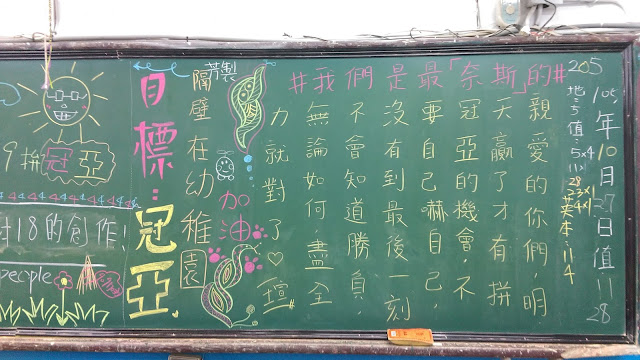 205
105年10日27日值11
28
#我們是最「奈斯」的#
親愛的你們,明
天贏了才有拼
冠亞的機會,不
要自己嚇自己,
沒有到最後一刻
不會知道勝負,
無論如何,盡全
力就對了♡
加油
芳製
隔壁在幼稚園
目標:冠亞.
9拚冠亞
18的創作!
people